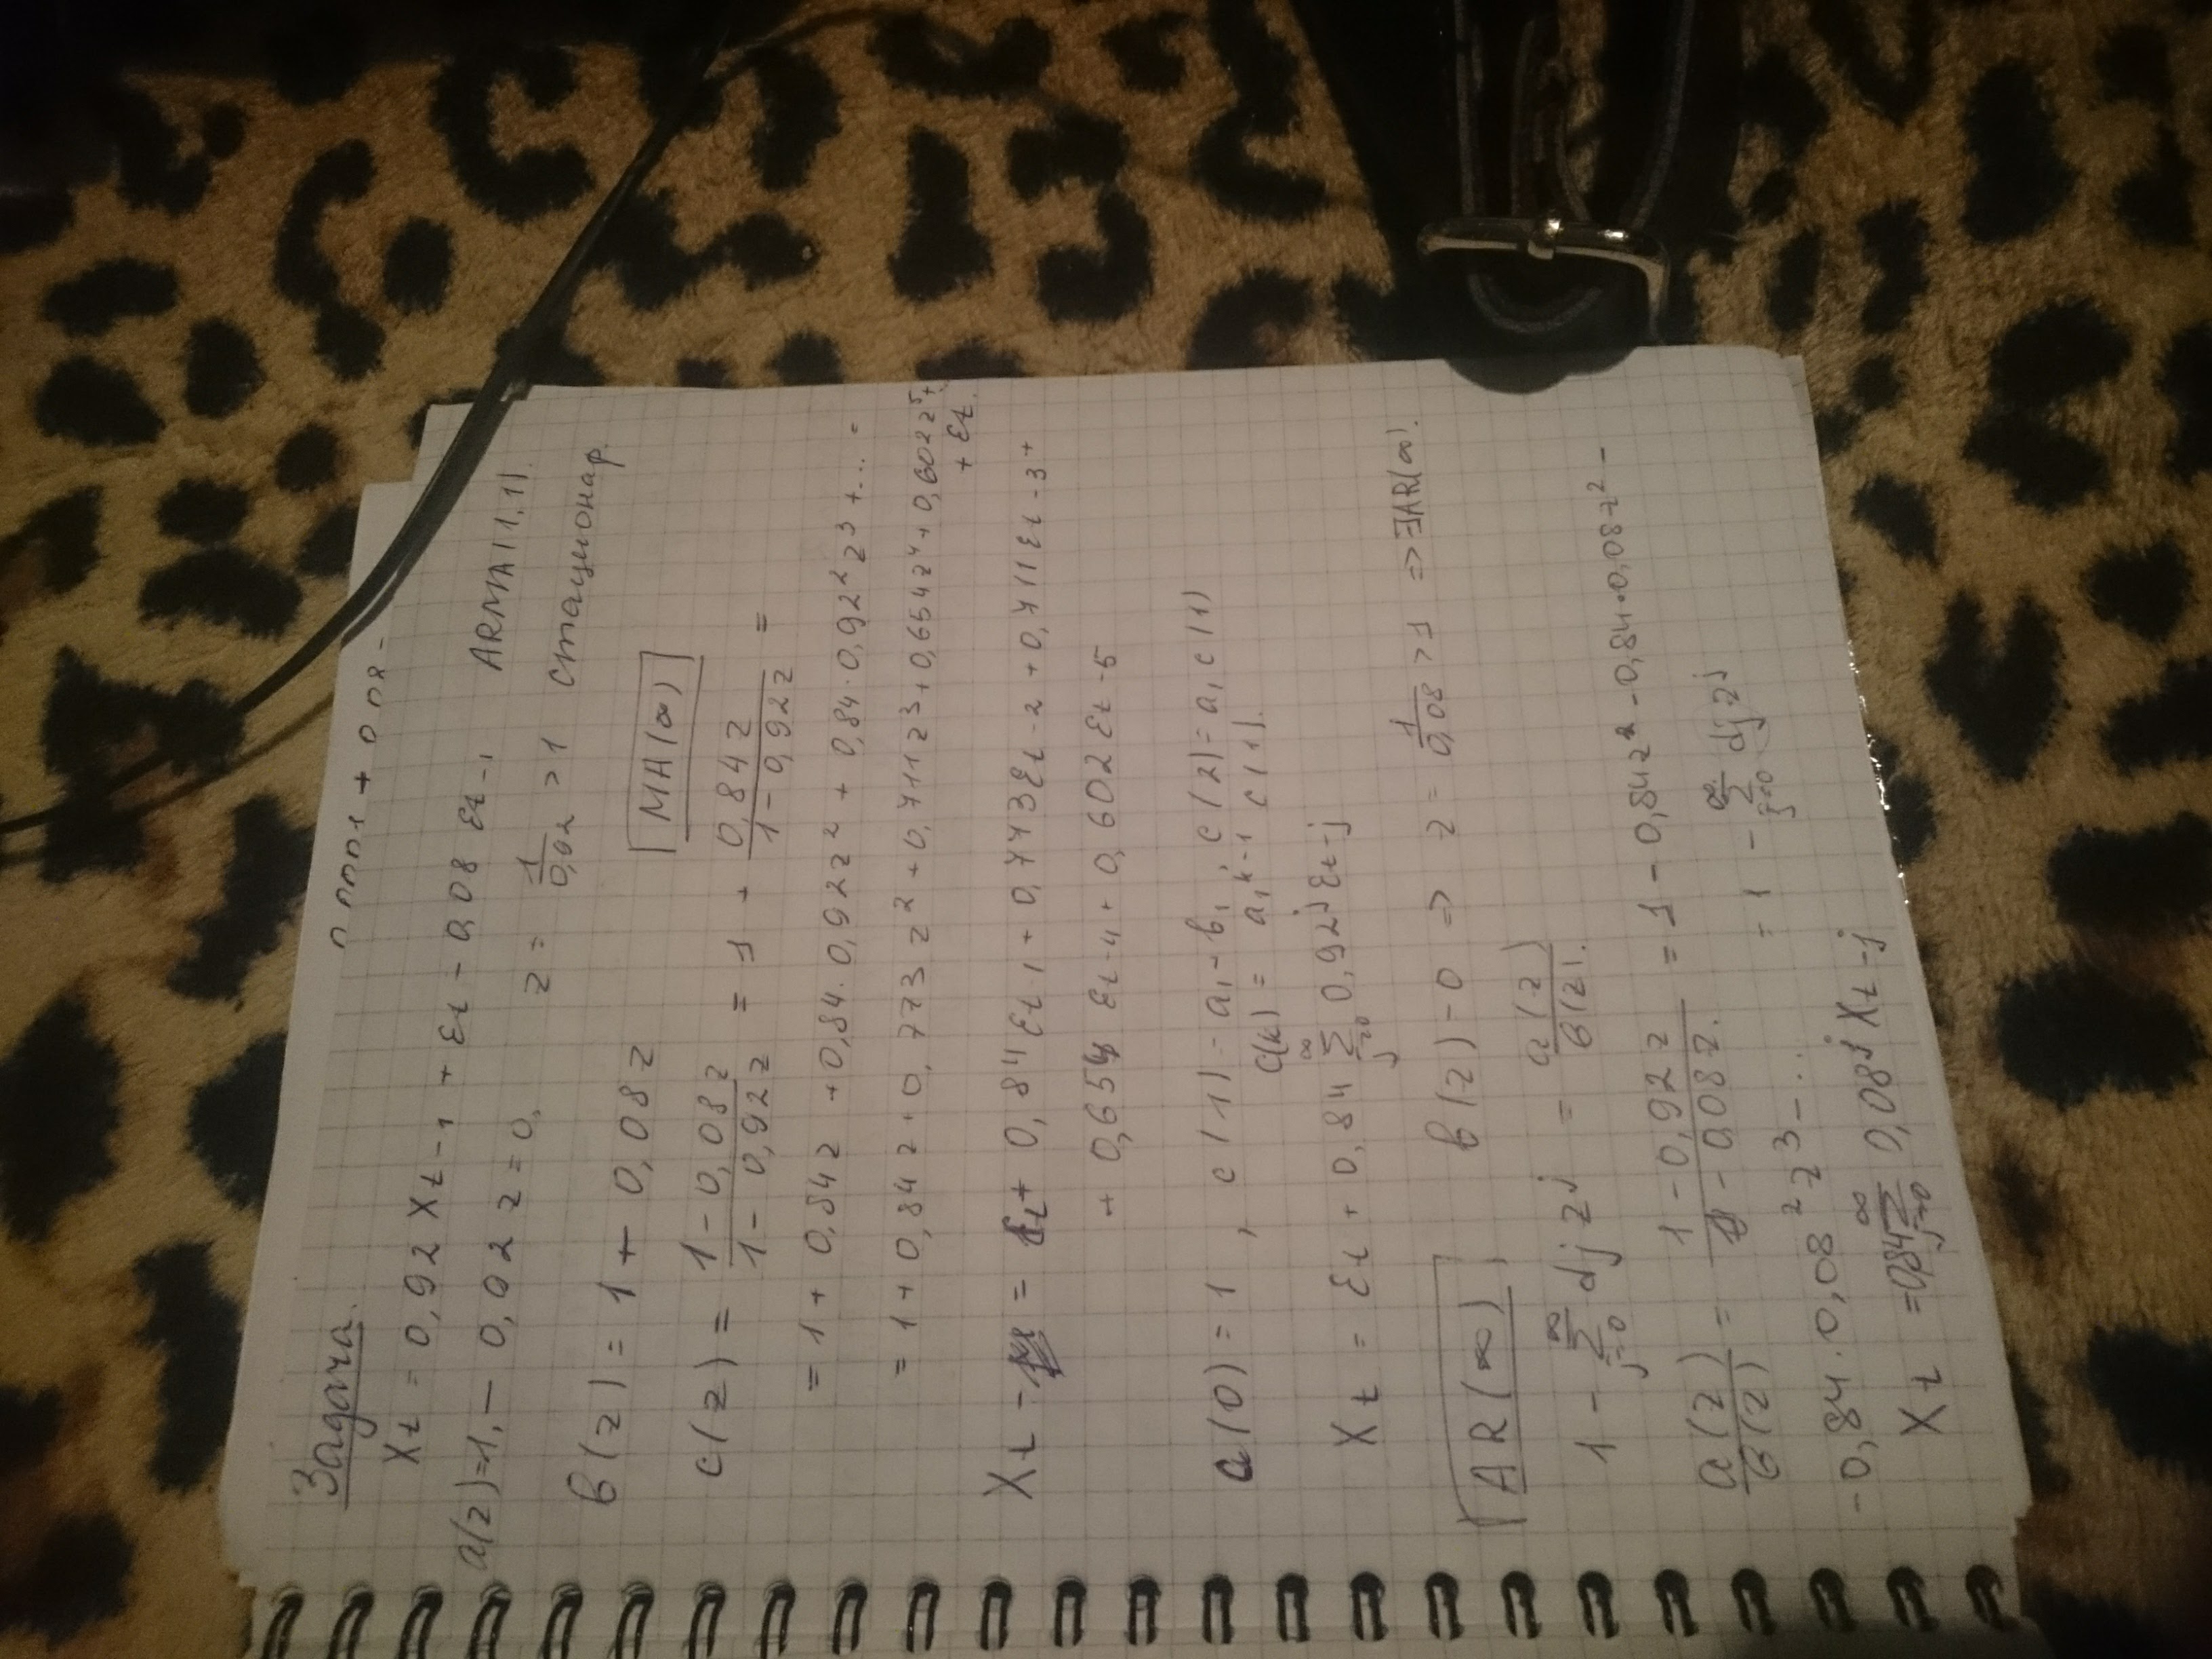 Задача.
Xt = 0,92 Xt-1 + εt - 0,08 εt-1 ARMA(1,1).
a(z)=1,- 0,02 z = 0, z = 1/0,02 > 1 стационар.
b(z) = 1 + 0,08 z
[MA(∞)]
c(z) = (1 - 0,08 z)/(1 - 0,92 z) = 1 + (0,84 z)/(1 - 0,92 z) =
= 1 + 0,84 z + 0,84 · 0,92 z² + 0,84 · 0,92² z³ + ... =
= 1 + 0,84 z + 0,773 z² + 0,711 z³ + 0,654 z⁴ + 0,602 z⁵ +
+ εt.
Xt - = εt + 0,84 εt-1 + 0,773 εt-2 + 0,711 εt-3 +
+ 0,654 εt-4 + 0,602 εt-5
a(0) = 1 , c(1) = a₁ - b₁, c(2) = a₁ c(1)
c(k) = a₁ᵏ⁻¹ c(1).
Xt = εt + 0,84 ∞ Σ j=0 0,92ʲ εt-j
[AR(∞)] b(z) - 0 => z = 1/0,08 > 1 => ∃AR(∞).
1 - ∞ Σ j=0 dj zʲ = a(z)/b(z).
a(z)/b(z) = (1 - 0,92 z)/(1 - 0,08 z.) = 1 - 0,84 z - 0,84 · 0,08 z² -
- 0,84 · 0,08² z³ - ... = 1 - ∞ Σ j=0 dj zʲ
Xt = 0,84 ∞ Σ j=0 0,08ʲ Xt-j